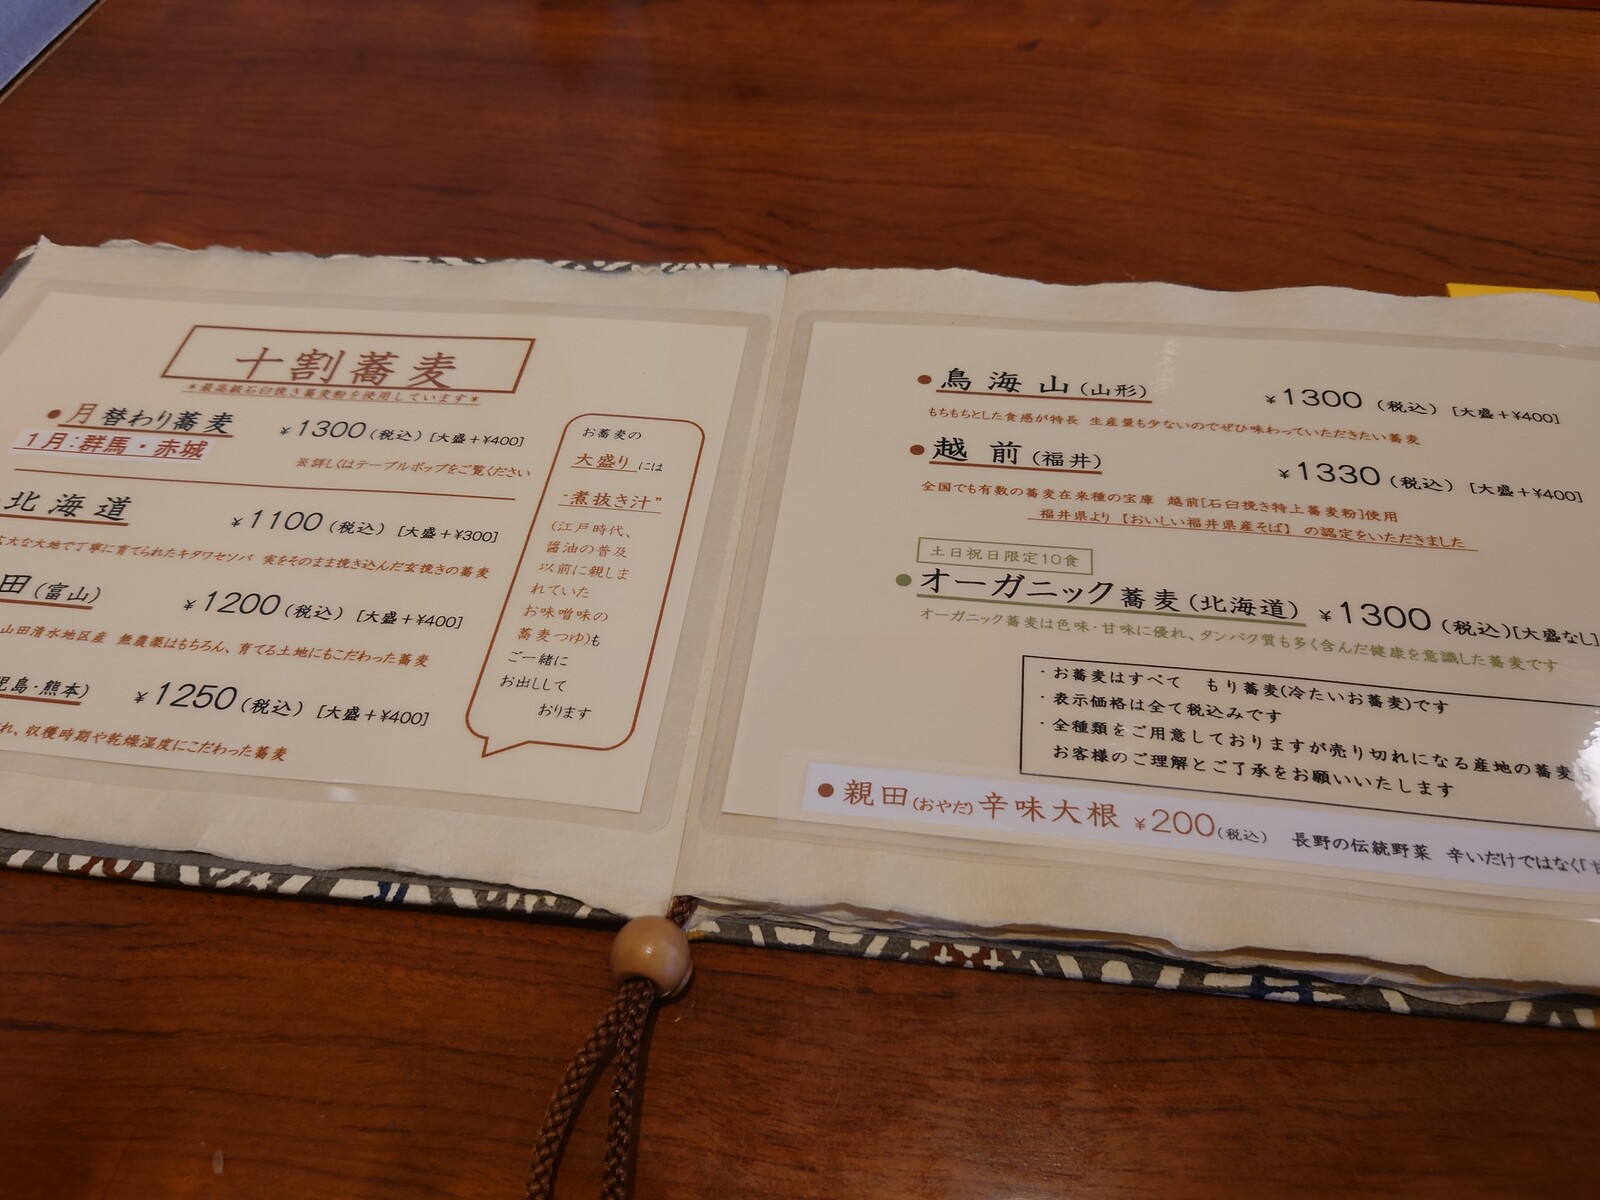 十割蕎麦
＊最高級石臼挽き蕎麦粉を使用しています＊
●月替わり蕎麦 ¥1300(税込) [大盛＋¥400]
1月:群馬・赤城
※詳しくはテーブルポップをご覧ください
北海道 ¥1100(税込) [大盛＋¥300]
大な大地で丁寧に育てられたキタワセソバ 実をそのまま挽き込んだ玄挽きの蕎麦
田(富山) ¥1200(税込) [大盛＋¥400]
山田清水地区産 無農薬はもちろん、育てる土地にもこだわった蕎麦
児島・熊本) ¥1250(税込) [大盛＋¥400]
れ、収穫時期や乾燥湿度にこだわった蕎麦
お蕎麦の
大盛りには
"煮抜き汁"
(江戸時代、
醤油の普及
以前に親しま
れていた
お味噌味の
蕎麦つゆ)も
ご一緒に
お出しして
おります
●鳥海山(山形) ¥1300 (税込) [大盛＋¥400]
もちもちとした食感が特長 生産量も少ないのでぜひ味わっていただきたい蕎麦
●越前(福井) ¥1330 (税込) [大盛＋¥400]
全国でも有数の蕎麦在来種の宝庫 越前[石臼挽き特上蕎麦粉]使用
福井県より【おいしい福井県産そば】の認定をいただきました
土日祝日限定10食
●オーガニック蕎麦(北海道) ¥1300 (税込)[大盛なし]
オーガニック蕎麦は色味・甘味に優れ、タンパク質も多く含んだ健康を意識した蕎麦です
・お蕎麦はすべて もり蕎麦(冷たいお蕎麦)です
・表示価格は全て税込みです
・全種類をご用意しておりますが売り切れになる産地の蕎麦も
お客様のご理解とご了承をお願いいたします
●親田(おやだ)辛味大根 ¥200(税込) 長野の伝統野菜 辛いだけではなく「甘